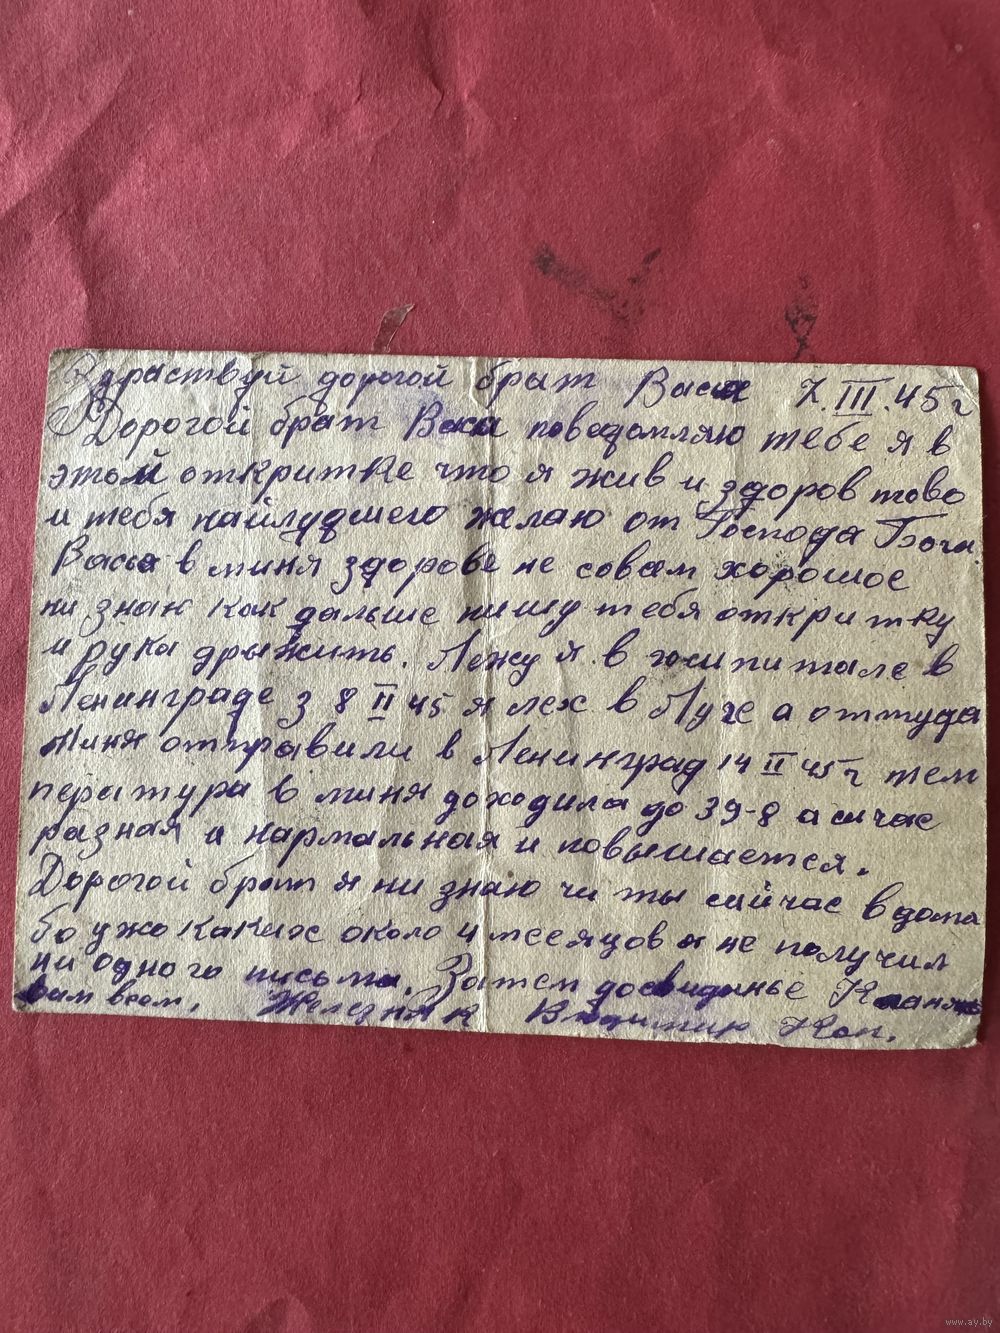 Здраствуй дорогой брат Вася 7.III.45 г
Дорогой брат Вася поведомляю тебе я в
этой откритке что я жив и здоров тово
и тебя найлудшего желаю от Господа Бога
Вася в миня здорове не совам хорошое
ни знаю как дальше пишу тебя откритку
и рука дрыжить. Лежу я в госпитале в
Ленинграде з 8 II 45 я леж в Луге а оттуда
миня отправили в Ленинград 14 II 45 г тем
пература в миня доходила до 39-8 а сичас
разная и нармальная и повышается.
Дорогой брат я ни знаю чи ты сийчас вдома
бо ужо каких около 4 месяцов я не получил
ни одного письма. Затем досвиданье Кланяюсь
вам всем. Владимир Кон.
www.ay.by